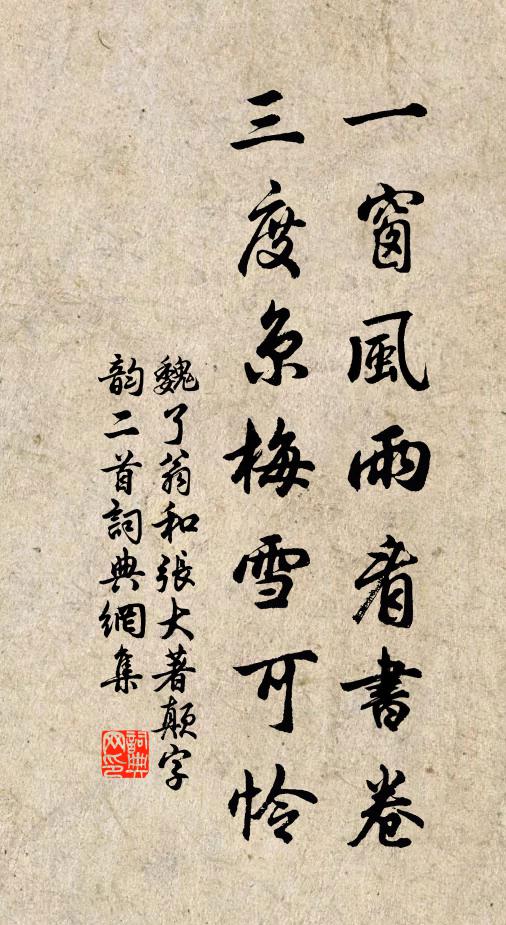 一窗風雨看書卷
三度京梅雪可怜
魏了翁和張大著顛字
韵二首詞典網集
詞典
网印